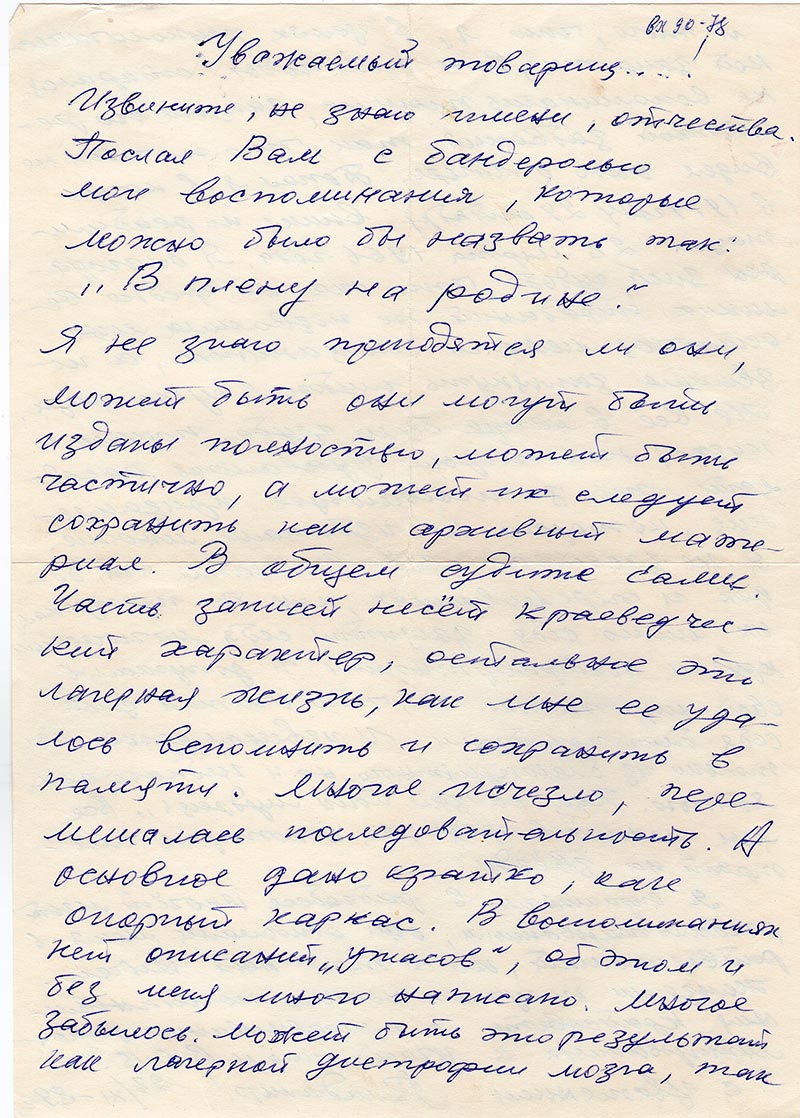 вх 90-78
Уважаемый товарищ.....!
Извините, не знаю имени, отчества.
Послал Вам с бандеролью
мои воспоминания, которые
можно было бы назвать так:
„В плену на родине."
Я не знаю пригодятся ли они,
может быть они могут быть
изданы полностью, может быть
частично, а может их следует
сохранить как архивный мате-
риал. В общем судите сами.
Часть записей несёт краеведчес-
кий характер, остальное это
лагерная жизнь, как мне ее уда-
лось вспомнить и сохранить в
памяти. Многое исчезло, пере-
мешалась последовательность. А
основное дано кратко, как
опорный каркас. В воспоминаниях
нет описаний „ужасов", об этом и
без меня много написано. Многое
забылось. Может быть это результат
как лагерной дистрофии мозга, так